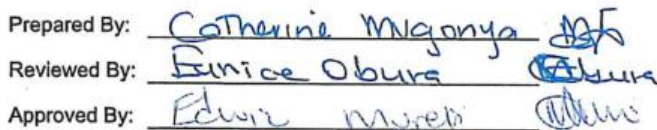 Prepared By: Catherine Mugonya
Reviewed By: Eunice Obura
Approved By: Edwin